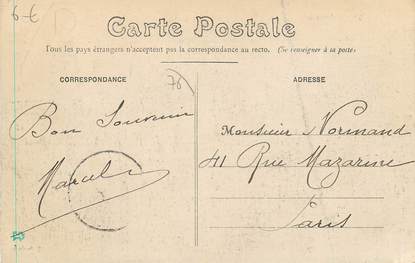 6 €
Carte Postale
Tous les pays étrangers n'acceptent pas la correspondance au recto. (Se renseigner à la poste)
CORRESPONDANCE
76
ADRESSE
Bon Souvenir
Marcel
Monsieur Normand
41 Rue Mazarine
Paris